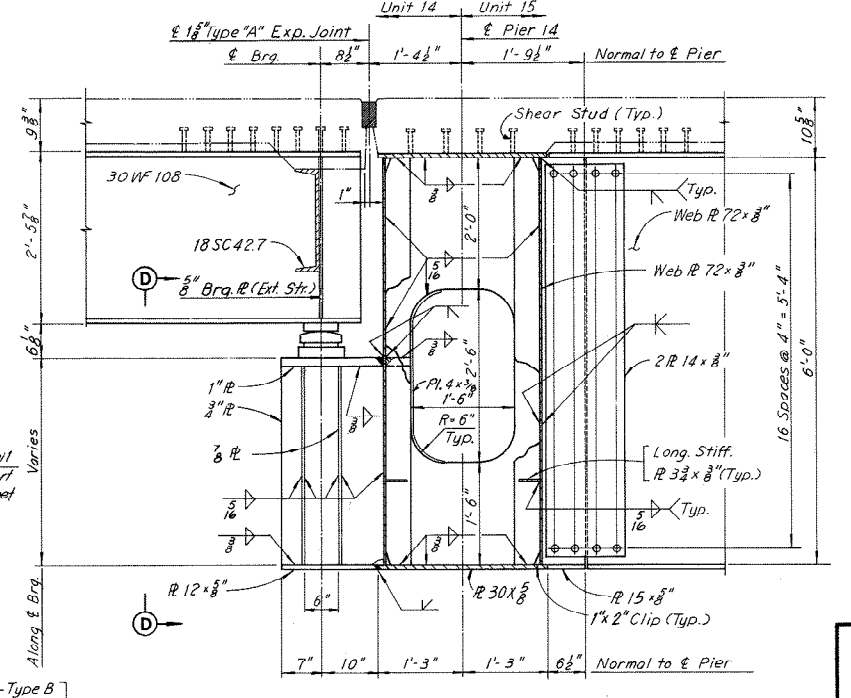 Unit 14 Unit 15
℄ 1 5/8" Type "A" Exp. Joint
℄ Pier 14
℄ Brg. 8½" 1'-4½" 1'-9½" Normal to ℄ Pier
9 3/8"
Shear Stud (Typ.)
10 5/8"
30 WF 108
1"
3/8
2'-0"
Typ.
Web ℙ 72 x 3/8"
2'-5 7/8"
18 SC 42.7
5/16
Web ℙ 72 x 3/8"
D
5/8" Brg. ℙ (Ext. Str.)
6 1/8"
3/8
2'-6"
2 ℙ 14 x 3/8"
16 Spaces @ 4" = 5'-4"
6'-0"
1" ℙ
3/4" ℙ
Pl. 4 x 3/8
1'-6"
3/8
R=6"
Typ.
7/8 ℙ
Long. Stiff.
ℙ 3¾ x 3/8" (Typ.)
Varies
5/16
1'-6"
5/16 Typ.
3/8
3/8
Along ℄ Brg.
ℙ 12 x 5/8"
6"
ℙ 30 x 5/8
ℙ 15 x 5/8"
1" x 2" Clip (Typ.)
D
7" 10" 1'-3" 1'-3" 6½" Normal to ℄ Pier
-Type B